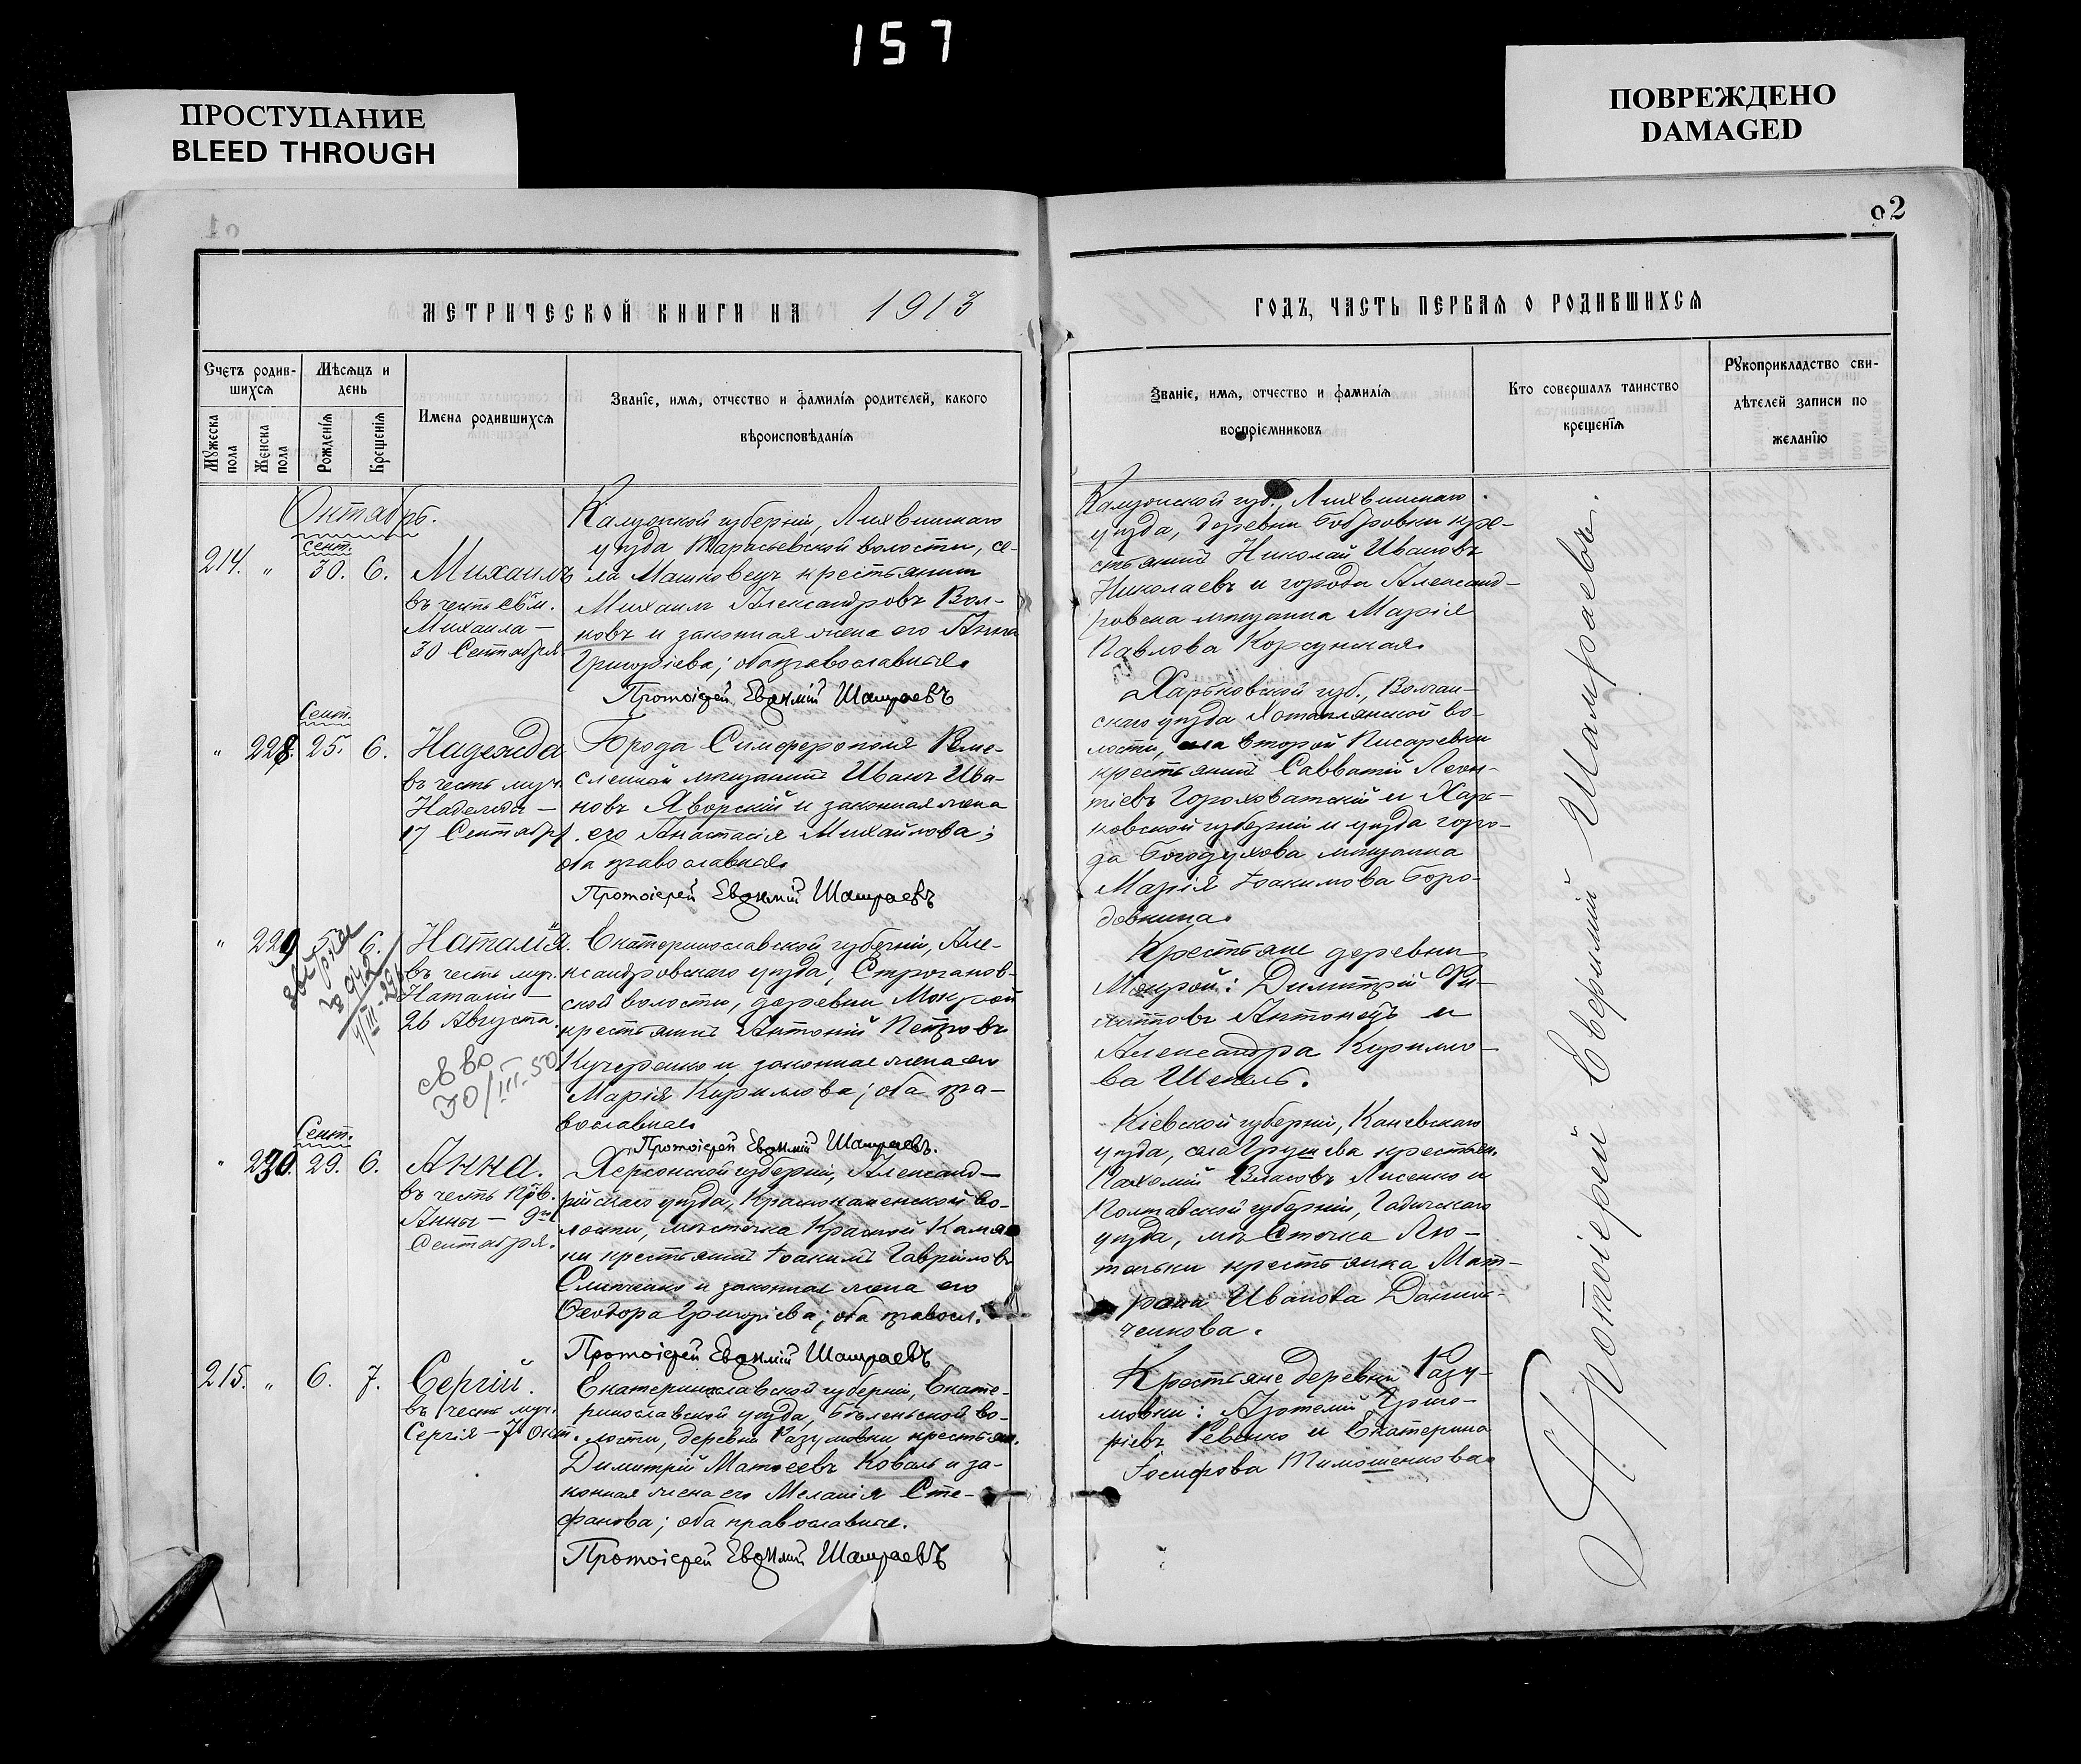 157
ПРОСТУПАНИЕ
BLEED THROUGH
ПОВРЕЖДЕНО
DAMAGED
92
МЕТРИЧЕСКОЙ КНИГИ НА 1913
Счетъ родив-
шихся
Мѣсяцъ и
день
Мужеска
пола
Женска
пола
Рожденія
Крещенія
Имена родившихся
Званіе, имя, отчество и фамилія родителей, какого
вѣроисповѣданія
Октябрь.
сент.
214. " 30. 6.
Михаилъ
въ честь св.
Михаила —
30 Сентября
Калужской губерніи, Лихвинскаго
уѣзда Тарасьевской волости, се-
ла Машковецъ крестьянинъ
Михаилъ Александровъ Вол-
ковъ и законная жена его Анна
Григоріева; оба православные.
Протоіерей Евѳимій Шамраевъ
Сент.
" 228. 25. 6.
Надежда
въ честь муч.
Надежды —
17 Сентября
Города Симферополя Реме-
сленный мѣщанинъ Иванъ Ива-
новъ Яворскій и законная жена
его Анастасія Михайлова;
оба православные.
Протоіерей Евѳимій Шамраевъ
" 229 5. 6.
Наталія.
въ честь муч.
Наталіи —
26 Августа.
30/III.50
Екатеринославской губерніи, Але-
ксандровскаго уѣзда, Строганов-
ской волости, деревни Мокрой
крестьянинъ Антоній Петровъ
Кучеренко и законная жена его
Марія Кириллова; оба пра-
вославные
Протоіерей Евѳимій Шамраевъ.
Сент.
" 230. 29. 6.
Анна.
въ честь прв.
Анны — 9го
Сентября.
Херсонской губерніи, Александ-
рійскаго уѣзда, Краснокаменской во-
лости, мѣстечка Красной Камен-
ки крестьянинъ Іоакимъ Гавриловъ
Слипченко и законная жена его
Ѳеодора Григоріева; оба правосл.
Протоіерей Евѳимій Шамраевъ
215. " 6. 7.
Сергій.
въ честь муч.
Сергія — 7 Окт.
Екатеринославской губерніи, Екате-
ринославской уѣзда, Бѣленьской во-
лости, деревни Разумовки крестьян.
Димитрій Матѳеевъ Коваль и за-
конная жена его Меланія Сте-
фанова; оба православные.
Протоіерей Евѳимій Шамраевъ
ГОДЪ, ЧАСТЬ ПЕРВАЯ О РОДИВШИХСЯ
Званіе, имя, отчество и фамилія
воспріемниковъ
Кто совершалъ таинство
крещенія
Рукоприкладство сви-
дѣтелей записи по
желанію
Калужской губ. Лихвинскаго
уѣзда, деревни Бобровки кре-
стьянинъ Николай Ивановъ
Николаевъ и города Александ-
ровска мѣщанка Марія
Павлова Корсунская.
Харьковской губ., Волчан-
скаго уѣзда Хотомлянской во-
лости, села второй Писаревки
крестьянинъ Савватій Леон-
тіевъ Гороховатскій и Харь-
ковской губерніи и уѣзда горо-
да Богодухова мѣщанка
Марія Іоакимова Боро-
довкина.
Крестьяне деревни
Мокрой: Димитрій Фи-
липповъ Антонецъ и
Александра Кирилло-
ва Шекель.
Кіевской губерніи, Каневскаго
уѣзда, села Грушева крестьян.
Пахомій Власовъ Лисенко и
Полтавской губерніи, Гадячскаго
уѣзда, мѣстечка Лю-
теньки крестьянка Мат-
рона Иванова Данил-
ченкова.
Крестьяне деревни Разу-
мовки: Артемій Григо-
ріевъ Ревенко и Екатерина
Іосифова Тимошенкова
Протоіерей Евѳимій Шамраевъ.